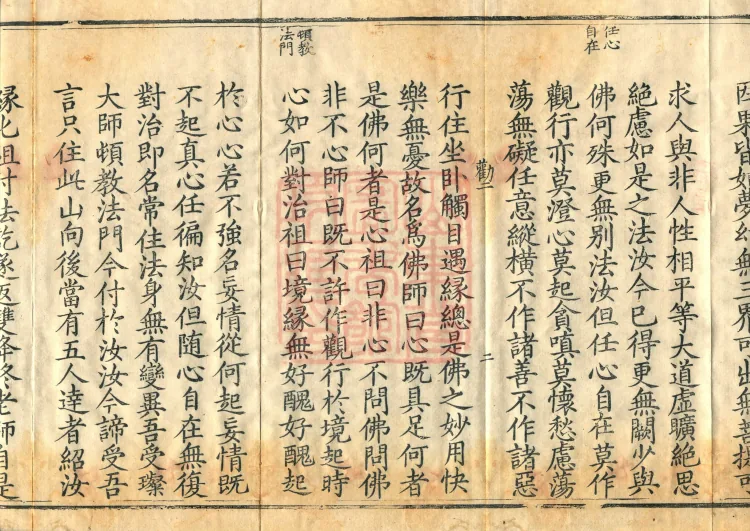 因果皆如夢幻無三界可出無菩提可
求人與非人性相平等大道虛曠絶思
絶慮如是之法汝今已得更無闕少與
任心
自在
佛何殊更無別法汝但任心自在莫作
觀行亦莫澄心莫起貪嗔莫懷愁慮蕩
蕩無礙任意縱橫不作諸善不作諸惡
勸二 二
行住坐卧觸目遇縁總是佛之妙用快
樂無憂故名爲佛師曰心既具足何者
是佛何者是心祖曰非心不問佛問佛
非不心師曰既不許作觀行於境起時
頓教
法門
心如何對治祖曰境縁無好醜好醜起
於心心若不強名妄情從何起妄情既
不起真心任徧知汝但隨心自在無復
對治即名常住法身無有變異吾受璨
大師頓教法門今付於汝汝今諦受吾
言只住此山向後當有五人達者紹汝
縁化祖付法訖遂返雙峰終老師自是